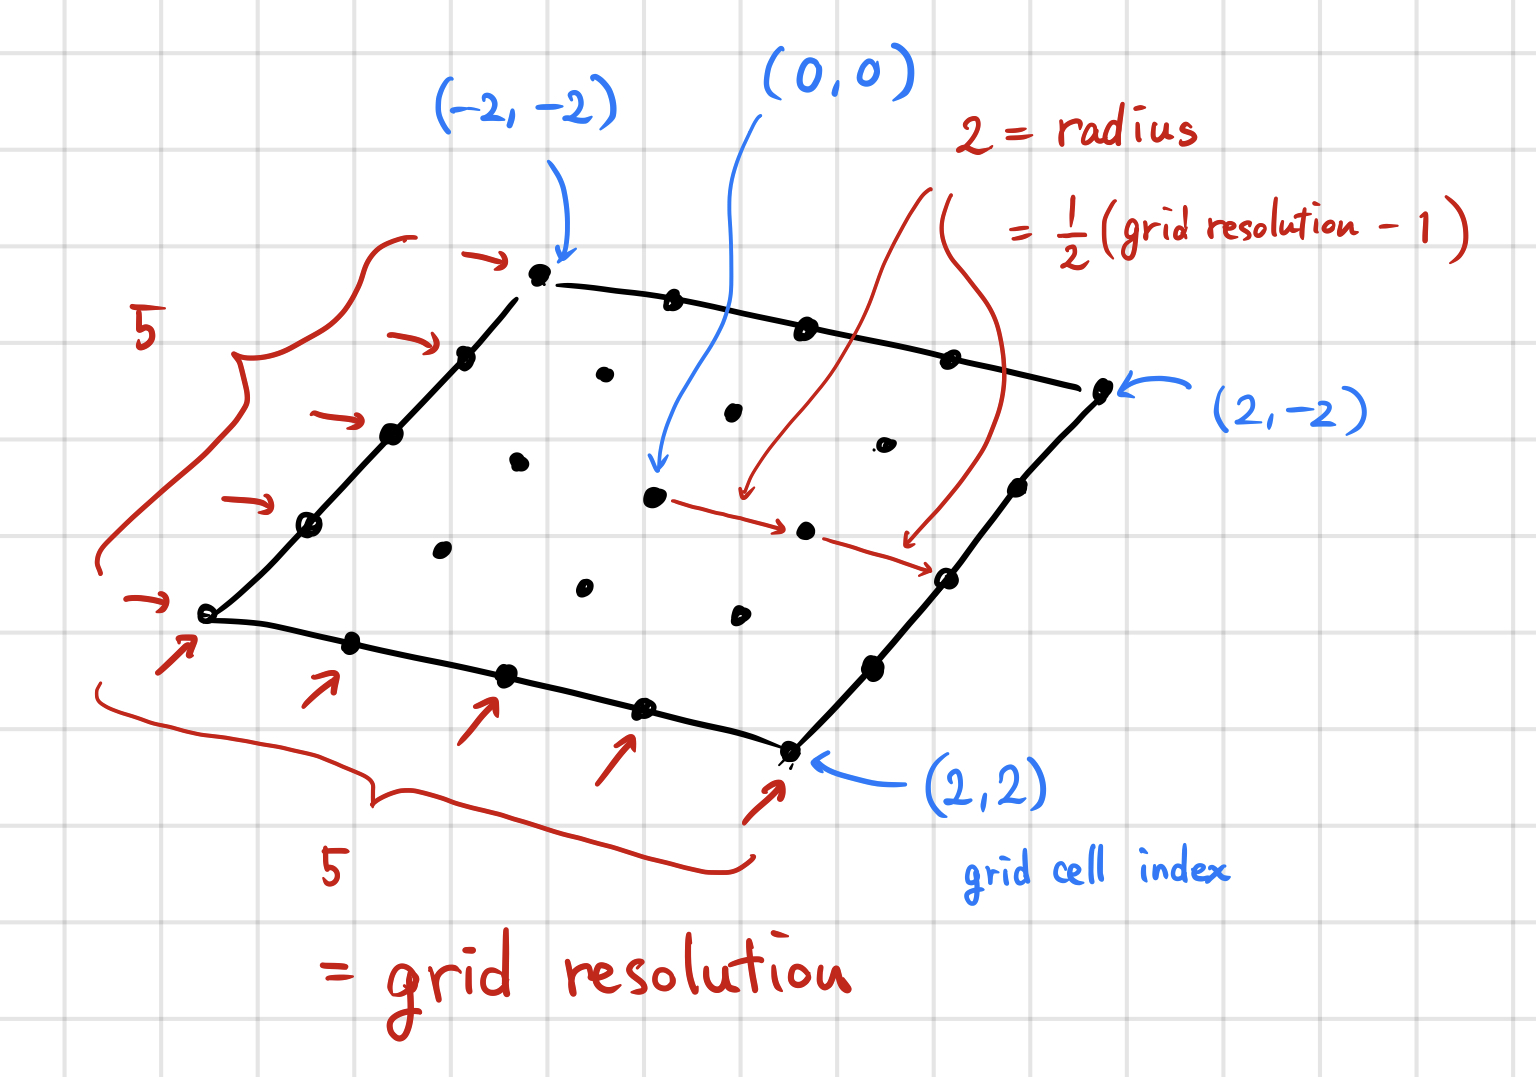 (-2, -2)
(0, 0)
2 = radius
= 1/2 (grid resolution - 1)
5
(2, -2)
(2, 2)
grid cell index
5
= grid resolution